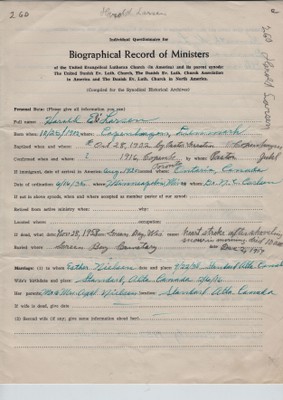 260
Harold Larsen
260 Harold Larsen
Individual Questionnaire for
Biographical Record of Ministers
of the United Evangelical Lutheran Church (in America) and its parent synods:
The United Danish Ev. Luth. Church, The Danish Ev. Luth. Church Association
in America and The Danish Ev. Luth. Church in North America.
(Compiled for the Synodical Historical Archives)
Personal Data: (Please give all information you can)
Full name: Harold E. Larsen
Born when: where: Copenhagen, Denmark
Baptized when and where Oct 28, 1902 by Pastor Copenhagen
Confirmed when and where? 1916, by whom: Pastor Juhl
If immigrant, date of arrival in America: Aug, where: Ontario, Canada
Date of ordination: 6/14/36 where: Minneapolis, Minn by: Dr. N.C. Carlsen
If not in above synods, when and accepted as member pastor of our synod:
Retired from active ministry when: why:
Located where: occupation:
If dead, what date: Nov 28, 1958 where: Green Bay, Wis cause: Heart stroke after shoveling
snow in morning died 12
Buried where: Green Bay Cemetery
Marriage: (1) to whom: Esther Nielsen date and place: Standard, Alta. Canada
Wife's birthdate and place: Standard, Alta. Canada
Her parents: Mr & Mrs. Axel Nielsen location: Standard Alta Canada
If wife is dead, give date:
(2) Second wife (if any; give same information about her):